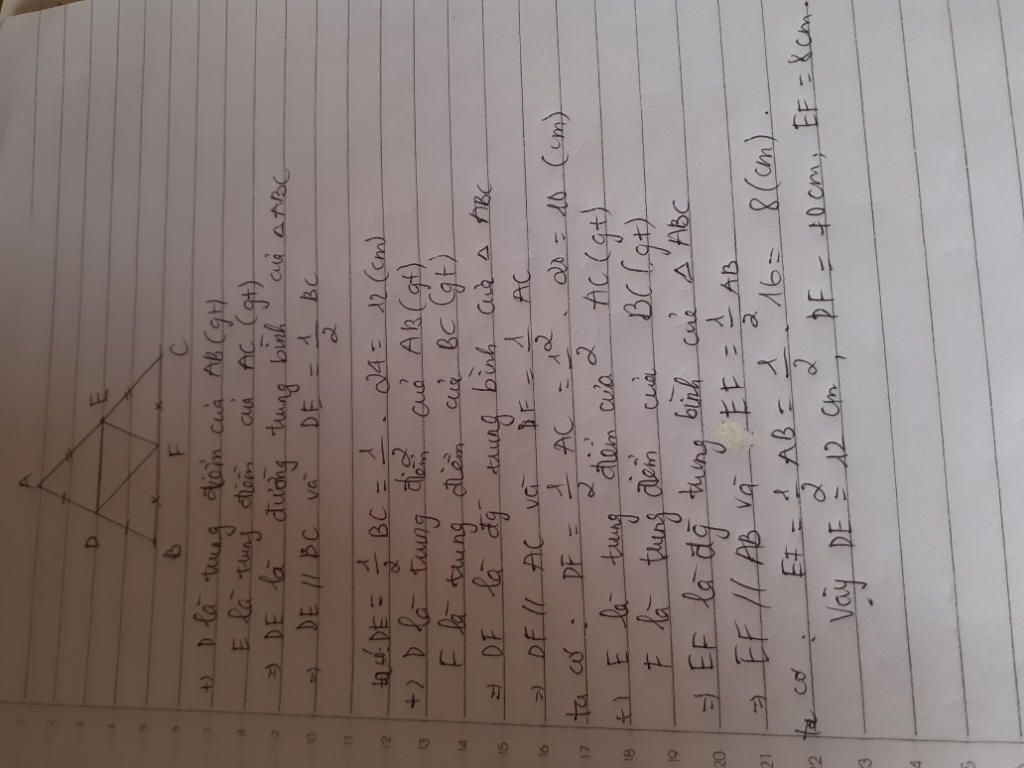 A
D E
B F C
+) D là trung điểm của AB (gt)
E là trung điểm của AC (gt)
=> DE là đường trung bình của △ ABC
=> DE // BC và DE = 1/2 BC
ta có: DE = 1/2 BC = 1/2 . 24 = 12 (cm)
+) D là trung điểm của AB (gt)
F là trung điểm của BC (gt)
=> DF là đg̃ trung bình của △ ABC
=> DF // AC và DF = 1/2 AC
ta có: DF = 1/2 AC = 1/2 . 20 = 10 (cm)
+) E là trung điểm của AC (gt)
F là trung điểm của BC (gt)
=> EF là đg̃ trung bình của △ ABC
=> EF // AB và EF = 1/2 AB
ta có: EF = 1/2 AB = 1/2 . 16 = 8 (cm).
Vậy DE = 12 cm, DF = 10cm, EF = 8cm.
1
2
3
4
5
6
7
8
9
10
11
12
13
14
15
16
17
18
19
20
21
22
23
24